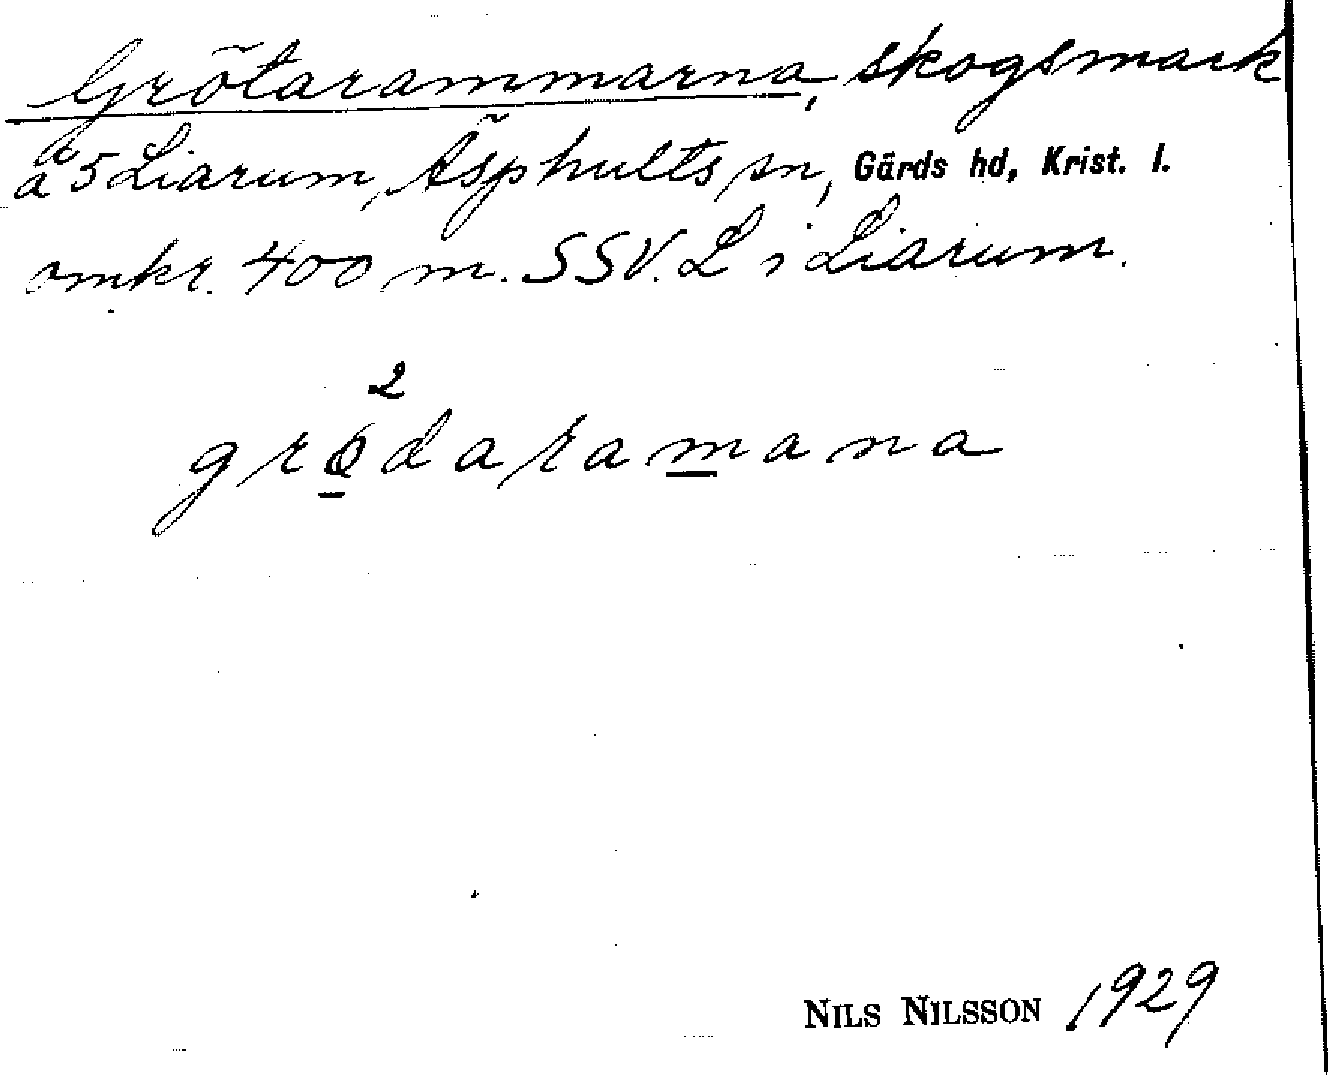 Grötarammarna, skogsmark
å 5 Liarum, Äsphults sn, Gärds hd, Krist. l.
omkr. 400 m. SSV. L i Liarum.
2
grødaramana
NILS NILSSON 1929